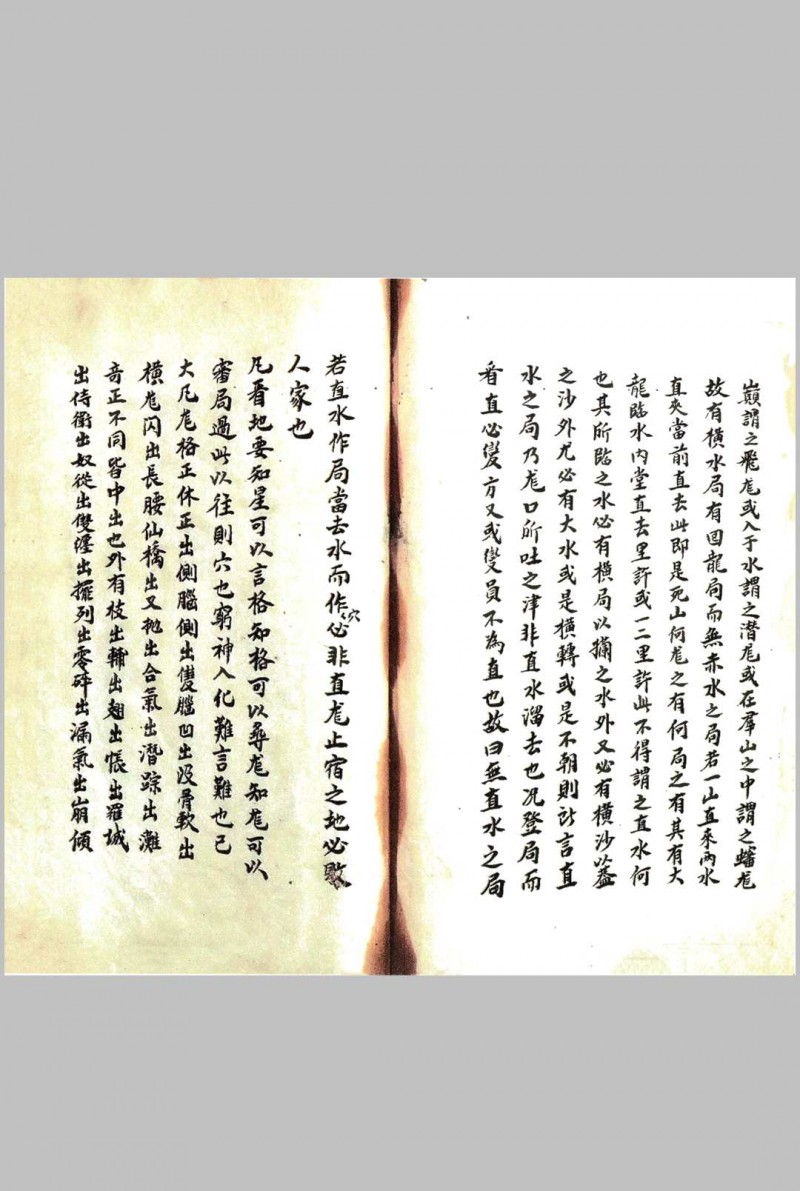 巔謂之飛龙或入于水謂之潛龙或在羣山之中謂之蟠龙
故有橫水局有囬龍局而無赤水之局若一山直來两水
直夾當前直去此即是死山何龙之有何局之有其有大
龍臨水内堂直去里許或一二里許此不得謂之直水何
也其所臨之水必有橫局以攔之水外又必有橫沙以葢
之沙外尤必有大水或是橫轉或是不朝則所言直
水之局乃龙口所吐之津非直水溜去也况登局而
看直必變方又或變員不為直也故曰無直水之局
若直水作局當去水而作穴必非直龙止宿之地必敗
人家也
凡看地要知星可以言格知格可以尋龙知龙可以
審局過此以往則穴也窮神入化難言難也已
大凡龙格正休正出側腦側出雙腦凹出没骨軟出
橫龙闪出長腰仙橋出又抛出合氣出潛踪出灘
奇正不同皆中出也外有枝出輔出翅出帳出羅城
出侍衛出奴從出雙纏出擺列出零碎出漏氣出崩傾